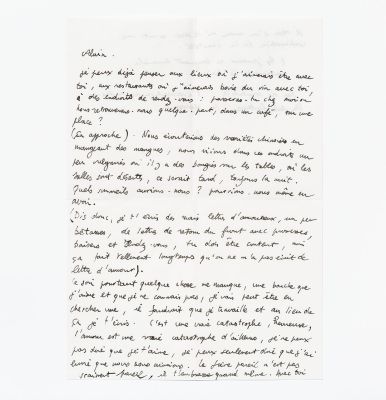 Alain.
je peux déjà penser aux lieux où j'aimerais être avec
toi, aux restaurants où j'aimerais boire du vin avec toi,
à des endroits de rendez-vous : passeras-tu chez moi ou
nous retrouverons-nous quelque part, dans un café, sur une
place ?
(En approche). Nous écouterions des variétés chinoises en
mangeant des mangues, nous irions dans ces endroits un
peu vulgaires où il y a des bougies sur les tables, où les
salles sont désertes, ce serait tard, toujours la nuit.
Quels sommeils aurions-nous ? pourrions-nous même en
avoir.
(Dis donc, je t'écris des vraies lettres d'amoureux, un peu
bêtasses, de lettre de retour du front avec promesses,
baisers et rendez-vous, tu dois être content, moi
ça fait tellement longtemps qu'on ne m'a pas écrit de
lettre d'amour).
Ce soir pourtant quelque chose me manque, une bouche que
j'aime et que je ne connais pas, je vais peut être en
chercher une, il faudrait que je travaille et au lieu de
ça je t'écris. C'est une vraie catastrophe, heureuse,
l'amour est une vraie catastrophe d'ailleurs, je ne peux
pas dire que je t'aime, je peux seulement dire que j'ai
que nous nous aimions. pareil n'est pas
pareil, je t'embrasse quand même. Avec toi